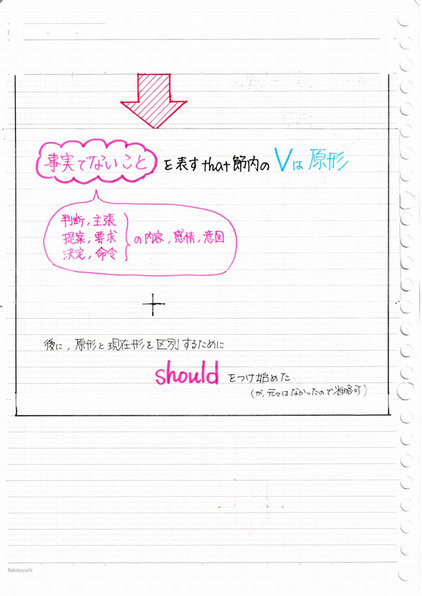 事実でないこと を表すthat節内のVは原形
判断,主張
提案,要求
決定,命令
の内容,感情,意図
+
後に,原形と現在形を区別するために
shouldをつけ始めた
(が,元々はなかったので省略可)